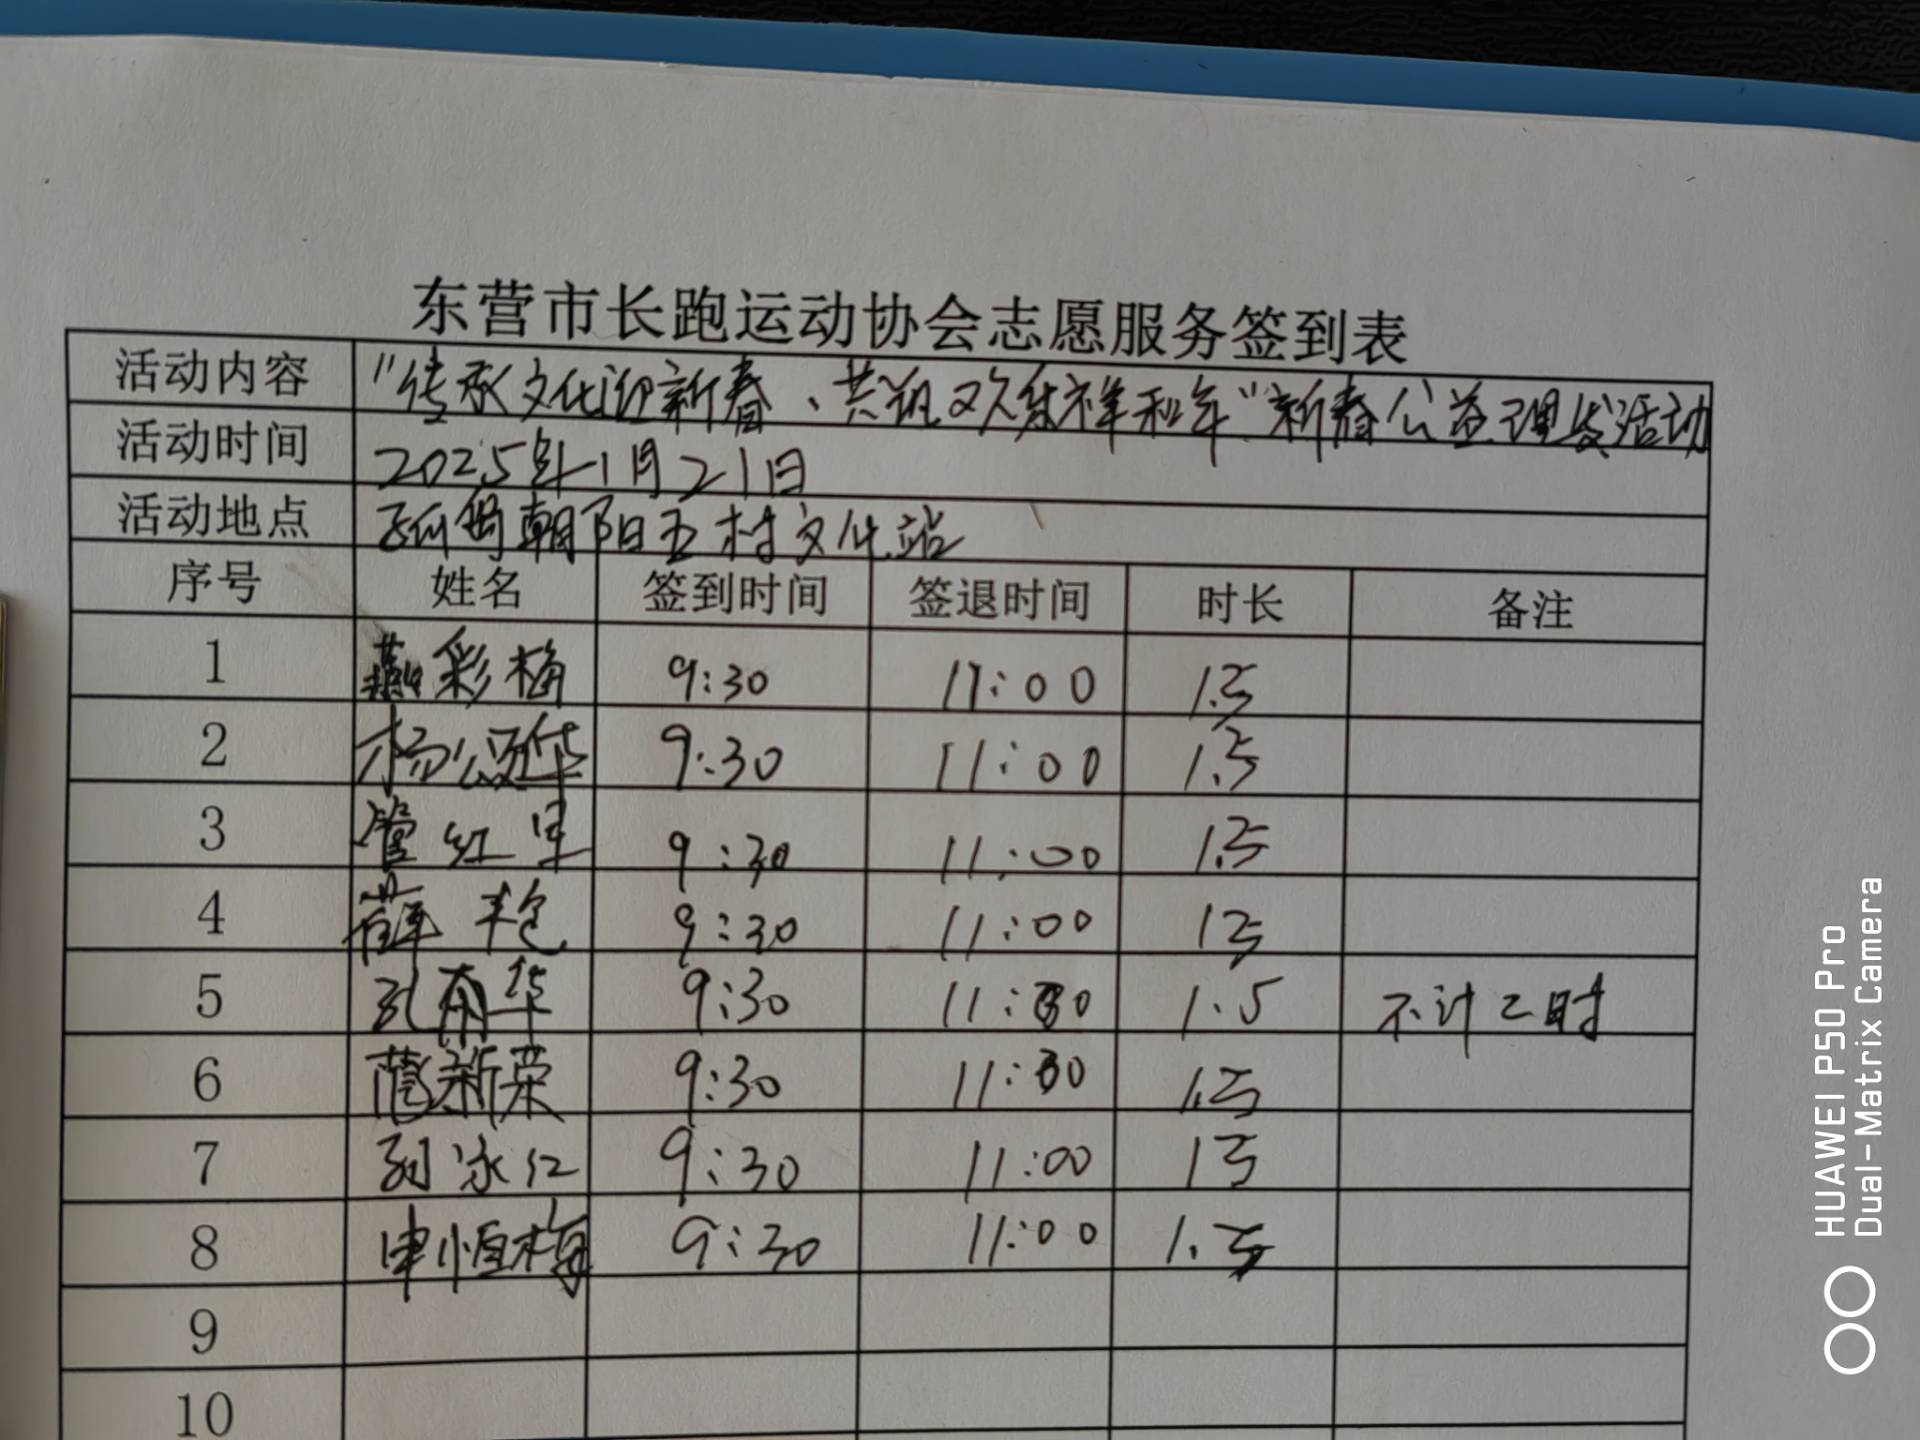 东营市长跑运动协会志愿服务签到表
活动内容 "传承文化迎新春、共筑欢乐祥和年"新春公益理发活动
活动时间 2025年1月21日
活动地点 孤岛朝阳五村文化站
序号 姓名 签到时间 签退时间 时长 备注
1 燕彩梅 9:30 11:00 1.5
2 杨公延华 9:30 11:00 1.5
3 管红星 9:30 11:00 1.5
4 薛艳 9:30 11:00 1.5
5 孔丽华 9:30 11:00 1.5 不计工时
6 范新荣 9:30 11:00 1.5
7 孙泳红 9:30 11:00 1.5
8 申恒梅 9:30 11:00 1.5
9
10
HUAWEI P50 Pro
Dual-Matrix Camera